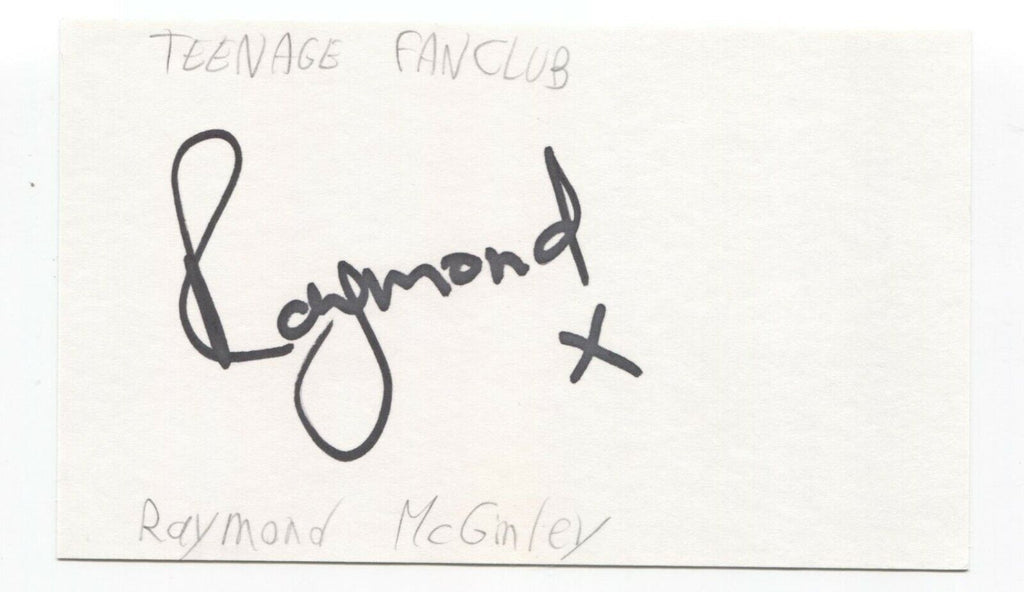 TEENAGE FANCLUB
Raymond
x
Raymond McGinley